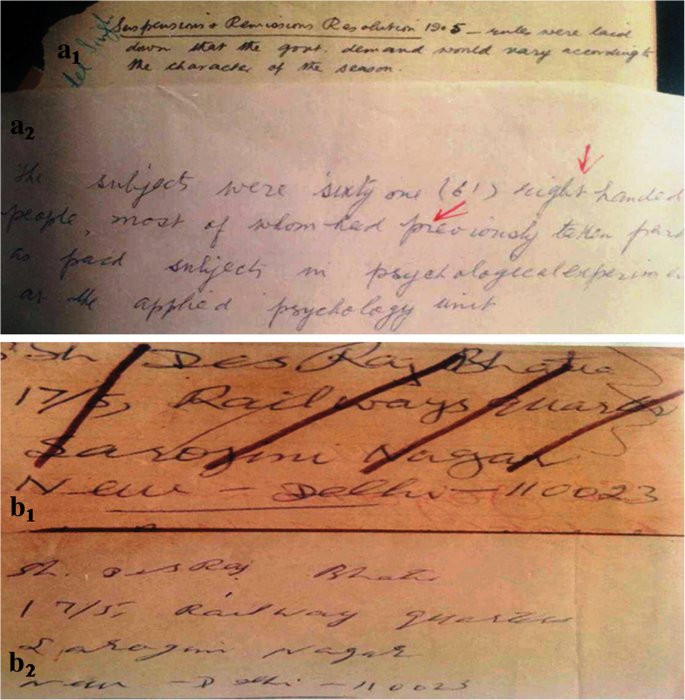 Suspensions & Remissions Resolution 1905 - rules were laid
a1
down that the govt. demand would vary according to
the character of the season.
a2
The subjects were sixty one (61) right handed
people, most of whom had previously taken part
as paid subjects in psychological experim
at the applied psychology unit
Sh. Des Raj Bhatia
17/5, Railways quarter
Sarojini Nagar
New - Delhi - 110023
b1
Sh. Des Raj Bhatia
17/5, Railway quarter
Sarojini Nagar
b2
New - Delhi - 110023